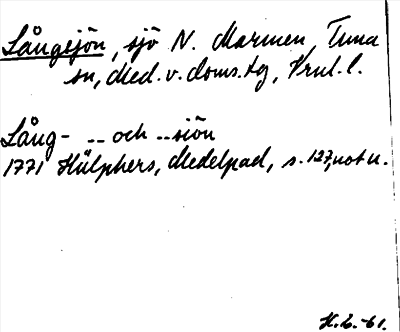 Långsjön, sjö N. Marmen, Tuna
sn, Med. v. doms. tg, Vrnl. l.
Lång- -- och --siön
1771 Hülphers, Medelpad, s. 127, not u.
H.L. -61.